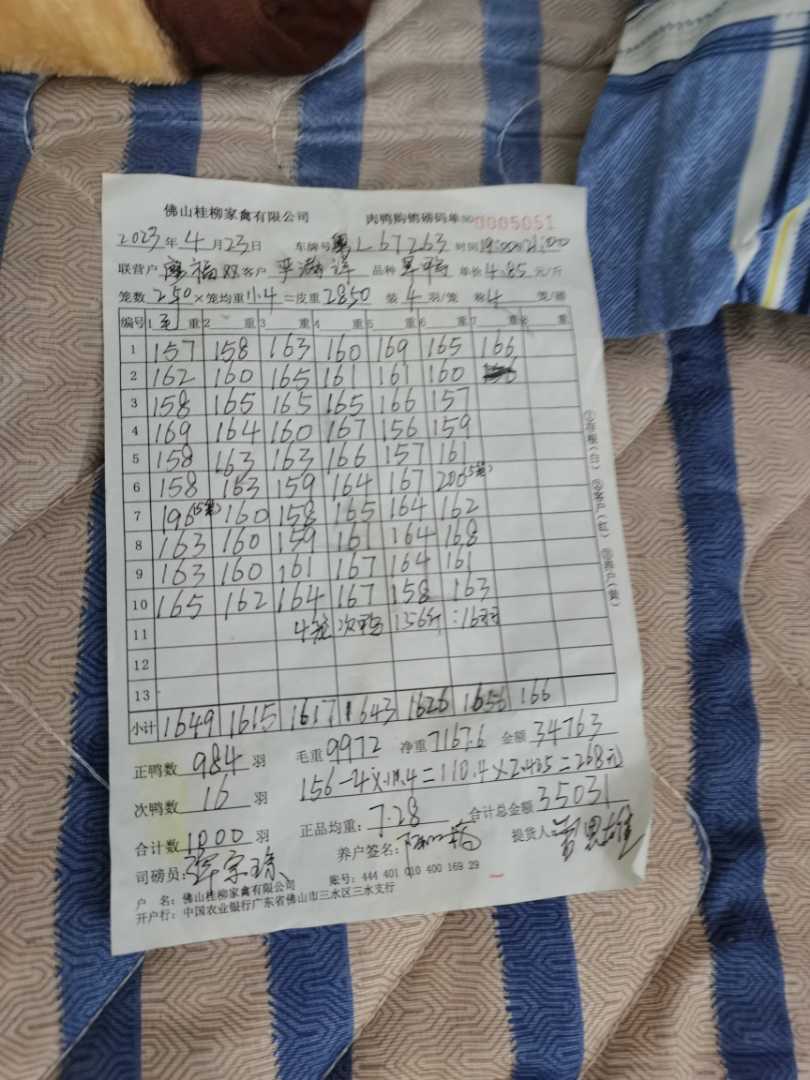 佛山桂柳家禽有限公司 肉鸭购销磅码单 NO 0005051
2023年4月23日 车牌号粤L67263 时间19:00至21:00
联营户 客户 品种 单价4.85元/斤
笼数250×笼均重11.4=皮重2850 装4羽/笼 称4笼/磅
编号 1 毛重 2 重 3 重 4 重 5 重 6 重 7 重 8 重
1 157 158 163 160 169 165 166
2 162 160 165 161 161 160
3 158 165 165 165 166 157
4 169 164 160 167 156 159
5 158 163 163 166 157 161
6 158 163 159 164 167 206(5笼)
7 196(5笼) 160 158 165 164 162
8 163 160 159 161 164 168
9 163 160 161 167 164 161
10 165 162 164 167 158 163
11 4笼次鸭156斤:16羽
12
13
小计 1649 1615 1617 1643 1626 1656 166
正鸭数984羽 毛重9972 净重7167.6 金额34763
次鸭数16羽 156-4×11.4=110.4×2.425=268元
合计数1000羽 正品均重:7.28 合计总金额35031
司磅员: 养户签名: 提货人:
户 名:佛山桂柳家禽有限公司 账号:444 401 010 400 169 29
开户行:中国农业银行广东省佛山市三水区三水支行
①存根(白) ②客户(红) ③养户(黄)